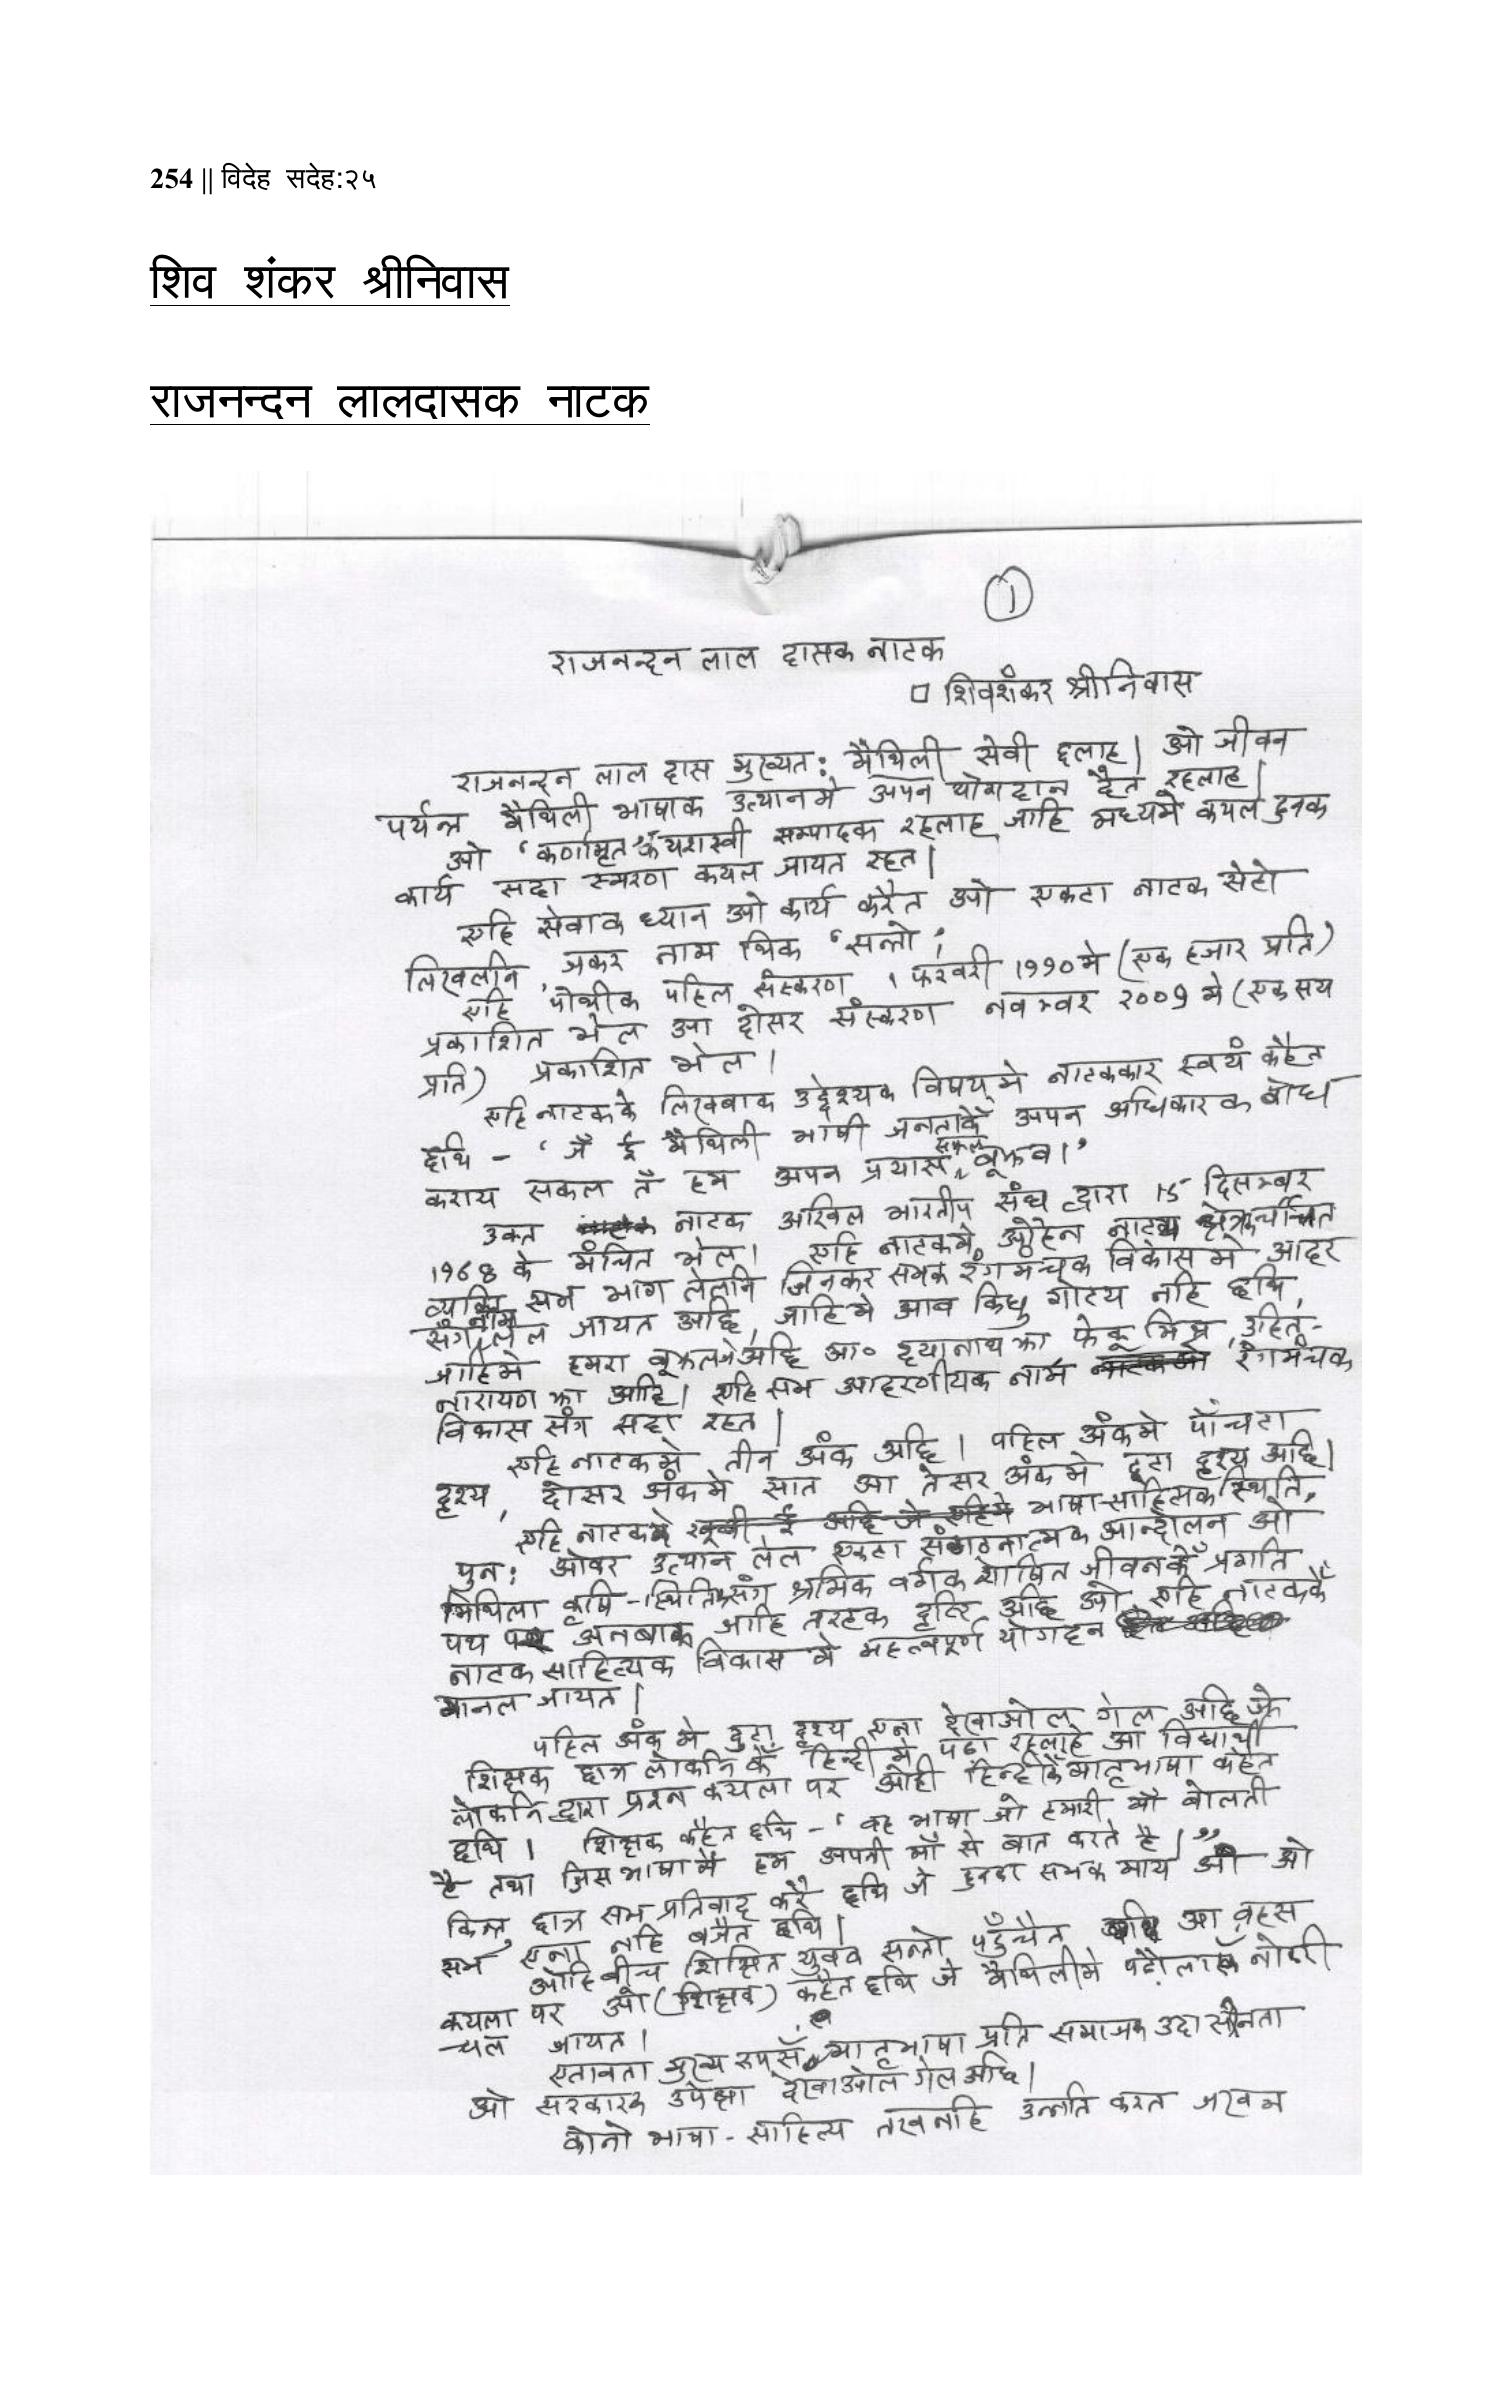 254 || विदेह सदेह:२५
शिव शंकर श्रीनिवास
राजनन्दन लालदासक नाटक
१
राजनन्दन लाल दासक नाटक
□ शिवशंकर श्रीनिवास
राजनन्दन लाल दास मुख्यत: मैथिली सेवी छलाह। ओ जीवन
पर्यन्त मैथिली भाषाक उत्थानमे अपन योगदान दैत रहलाह।
ओ 'कर्णामृत'क यशस्वी सम्पादक रहलाह जाहि मध्यमे कयल हुनक
कार्य सदा स्मरण कयल जायत रहत।
एहि सेवाक ध्यान ओ कार्य करैत ओ एकटा नाटक सेटो
लिखलनि, जकर नाम थिक 'सन्तो';
एहि पोथीक पहिल संस्करण १ फरवरी 1990 मे (एक हजार प्रति)
प्रकाशित भेल आ दोसर संस्करण नवम्वर २००9 मे (एक सय
प्रति) प्रकाशित भेल।
एहि नाटकके लिखबाक उद्देश्यक विषयमे नाटककार स्वयं कहैत
छथि - 'जँ ई मैथिली भाषी जनताकेँ अपन अधिकारक बोध
कराय सकल तँ हम अपन प्रयास सफल बूझब।'
उक्त नाटक अखिल भारतीय संघ द्वारा 15 दिसम्बर
1968 के मंचित भेल। एहि नाटकमे ओहेन नाट्य क्षेत्रक चर्चित
व्यक्ति सभ भाग लेलनि जिनकर सभक रंगमन्चक विकासमे आदर
संग नाम लेल जायत अछि, जाहिमे आब किछु गोटय नहि छथि,
जाहिमे हमरा बूझल अछि आ० दयानाथ झा फेकू मिश्र, उदित-
नारायण झा आदि। एहि सभ आदरणीयक नाम रंगमंचक
विकास संग सदा रहत।
एहि नाटकमे तीन अंक अछि। पहिल अंकमे पाँचटा
दृश्य, दोसर अंकमे सात आ तेसर अंकमे दूटा दृश्य अछि।
एहि नाटकमे भाषा-साहित्यिक स्थिति,
पुन: ओकर उत्थान लेल एकटा संगठनात्मक आन्दोलन ओ
मिथिला कृषि-स्थितिक संग श्रमिक वर्गक शोषित जीवनकेँ प्रगति
पथ पर अनबाक जाहि तरहक दृष्टि अछि ओ एहि नाटककेँ
नाटक साहित्यक विकास मे महत्त्वपूर्ण योगदन
मानल जायत।
पहिल अंक मे दुटा दृश्य एना देखाओल गेल अछि जे
शिक्षक छात्र लोकनि केँ हिन्दी मे पढा रहलाहे आ विद्यार्थी
लोकनि द्वारा प्रश्न कयला पर ओही हिन्दीकेँ मातृभाषा कहैत
छथि। शिक्षक कहैत छथि - 'वह भाषा जो हमारी माँ बोलती
है तथा जिस भाषा में हम अपनी माँ से बात करते है।"
किन्तु छात्र सभ प्रतिवाद करै छथि जे हुनका सभक माय ओ
सभ एना नहि बजैत छथि।
ओहि बीच शिक्षित युवक सन्तो पहुँचैत छथि आ बहस
कयला पर ओ (शिक्षक) कहैत छथि जे मैथिलीमे पढ़ौलासँ नोकरी
चल जायत।
एतावता मुख्य रूपसँ मातृभाषा प्रति समाजक उदासीनता
ओ सरकारक उपेक्षा देखाओल गेल अछि।
कोनो भाषा-साहित्य तखनहि उन्नति करत जखन